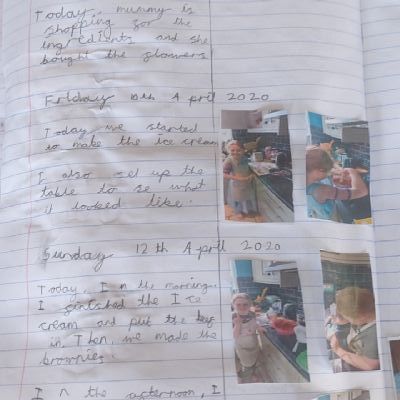 Today, mummy is
shopping for the
ingredients and she
bought the flowers!
Friday 10th April 2020
Today we started
to make the ice cream
I also set up the
table to se what
it looked like.
Sunday 12th April 2020
Today, In the morning.
I finished the Ice
cream and put the
in. Then, we made the
brownies.
In the afternoon, I